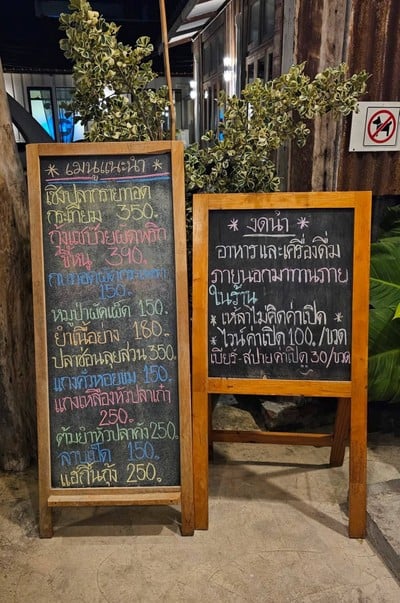 * เมนูแนะนำ *
เชิงปลากรายทอด
กระเทียม 350.
กุ้งแช่บ๊วยผัดพริก
ขี้หนู 390.
150.
หมูป่าผัดเผ็ด 150.
ยำเนื้อย่าง 180.
ปลาช่อนลุยสวน 350.
แกงคั่วหอยขม 150.
แกงเหลืองหัวปลาเก๋า
250.
ต้มยำหัวปลาคัง 250.
ลาบเป็ด 150.
แฮ่กึ๊นกุ้ง 250.
* งดนำ *
อาหารและเครื่องดื่ม
ภายนอกมาทานภาย
ในร้าน
* เหล้าไม่คิดค่าเปิด *
* ไวน์ค่าเปิด 100./ขวด
เบียร์-สปายค่าเปิด 30/ขวด